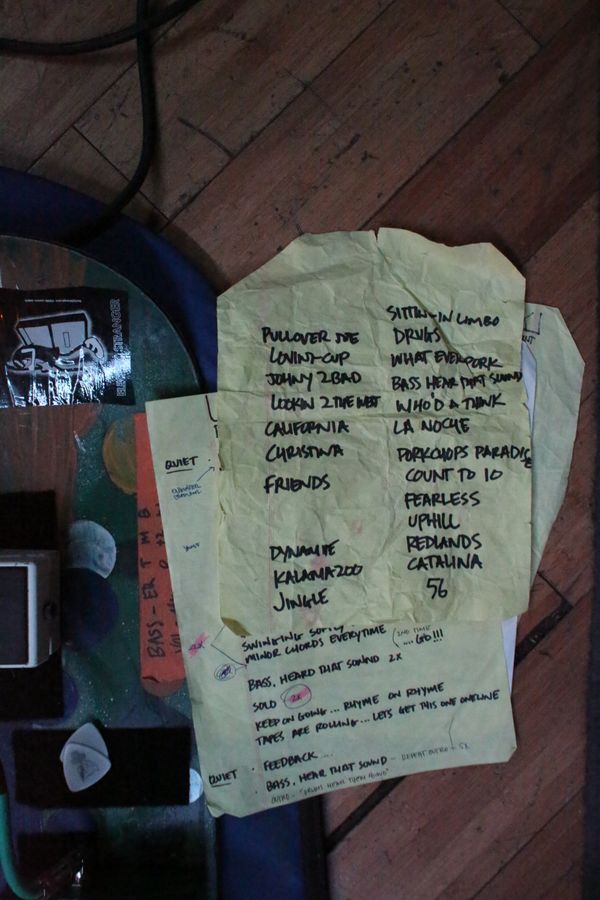 PULLOVER JOE
LOVIN-CUP
JOHNY 2BAD
LOOKIN 2 THE WEST
CALIFORNIA
CHRISTINA
FRIENDS
DYNAMITE
KALAMAZOO
JINGLE
SITTIN-IN LIMBO
DRUGS
WHAT EVER PORK
BASS HEAR THAT SOUND
WHO'D A THINK
LA NOCHE
PORKCHOPS PARADISE
COUNT TO 10
FEARLESS
UPHILL
REDLANDS
CATALINA
56
QUIET
STRANGER
BASS - ER T M B
MINOR CHORDS EVERYTIME
2ND TIME
... GO!!!
BASS, HEARD THAT SOUND 2X
SOLO 2X
KEEP ON GOING ... RHYME ON RHYME
TAPES ARE ROLLING ... LETS GET THIS ONE ONELINE
QUIET · FEEDBACK ...
· BASS, HEAR THAT SOUND - REPEAT INTRO - 5X